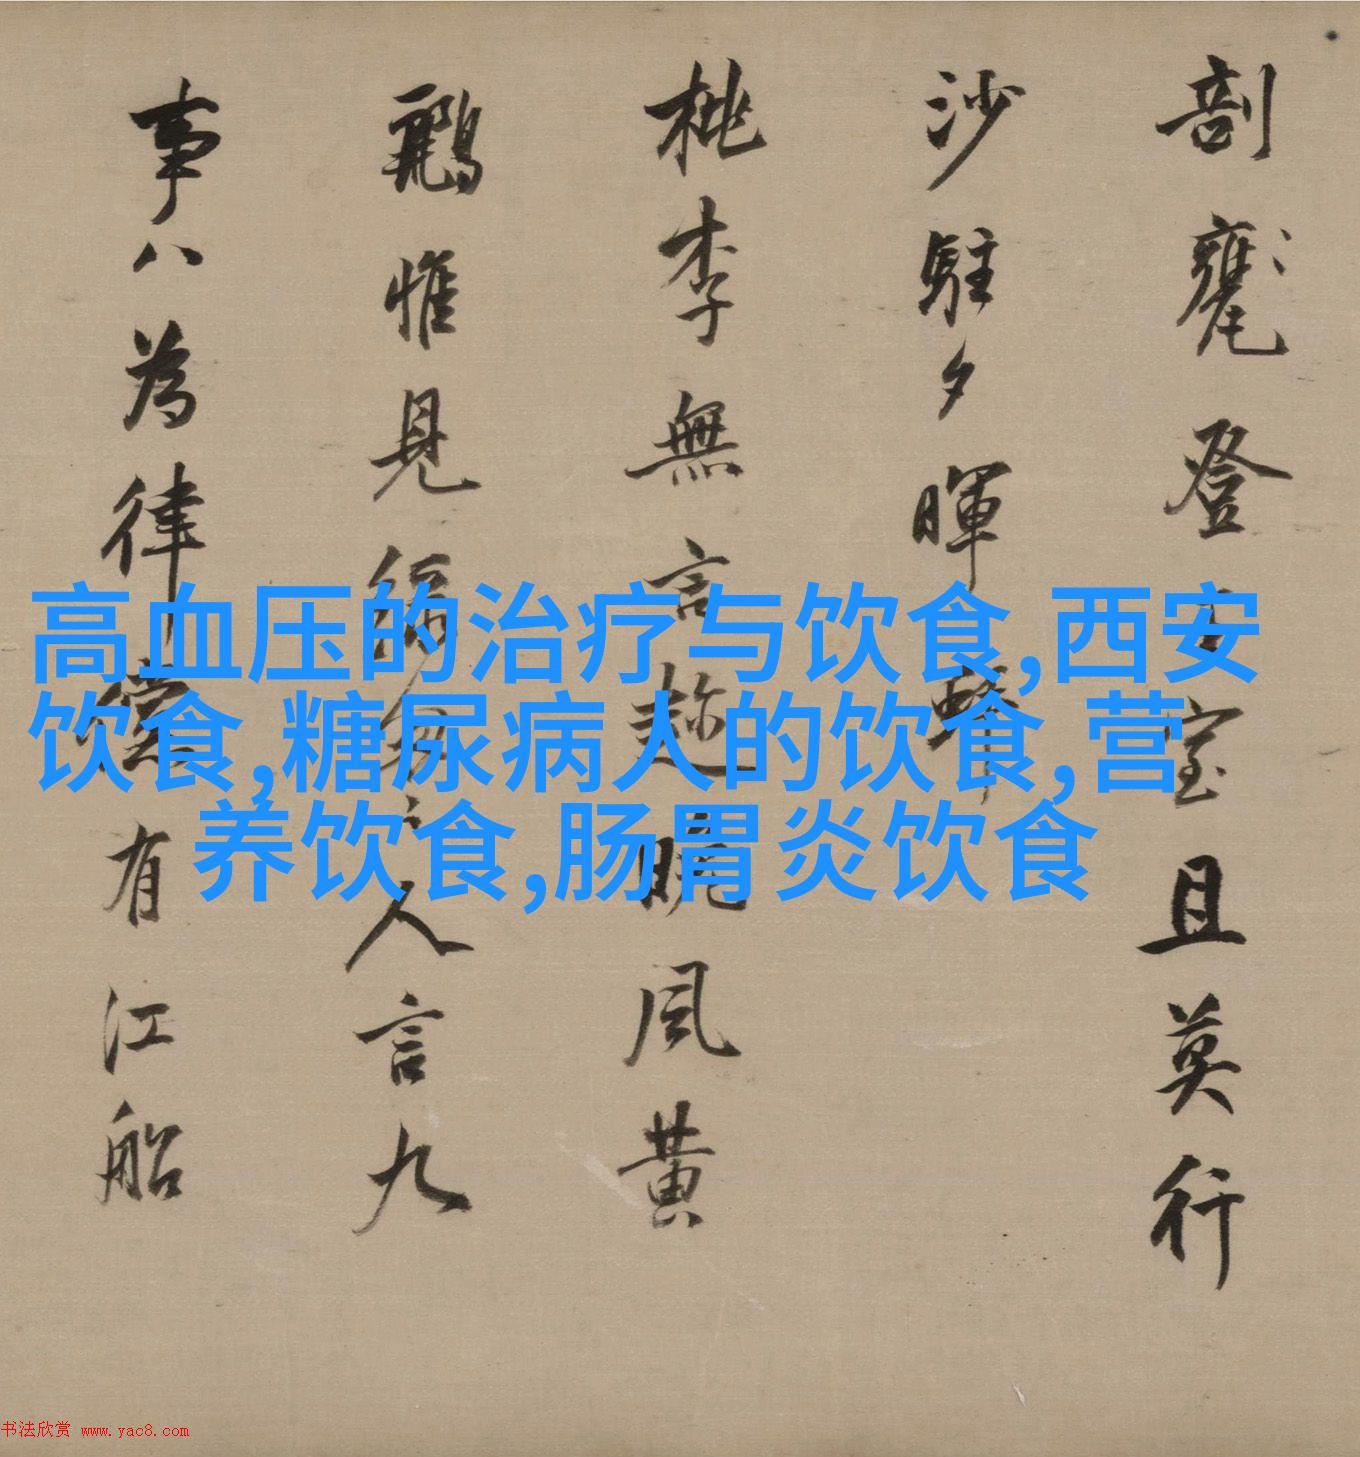 剖甕登室且莫行
沙駐夕暉
桃李無言趂晚風黃
鸝惟見綠匆〻人言九
事八為律儻有江船
高血压的治疗与饮食,西安
饮食,糖尿病人的饮食,营
养饮食,肠胃炎饮食
书法欣赏 www.yac8.com